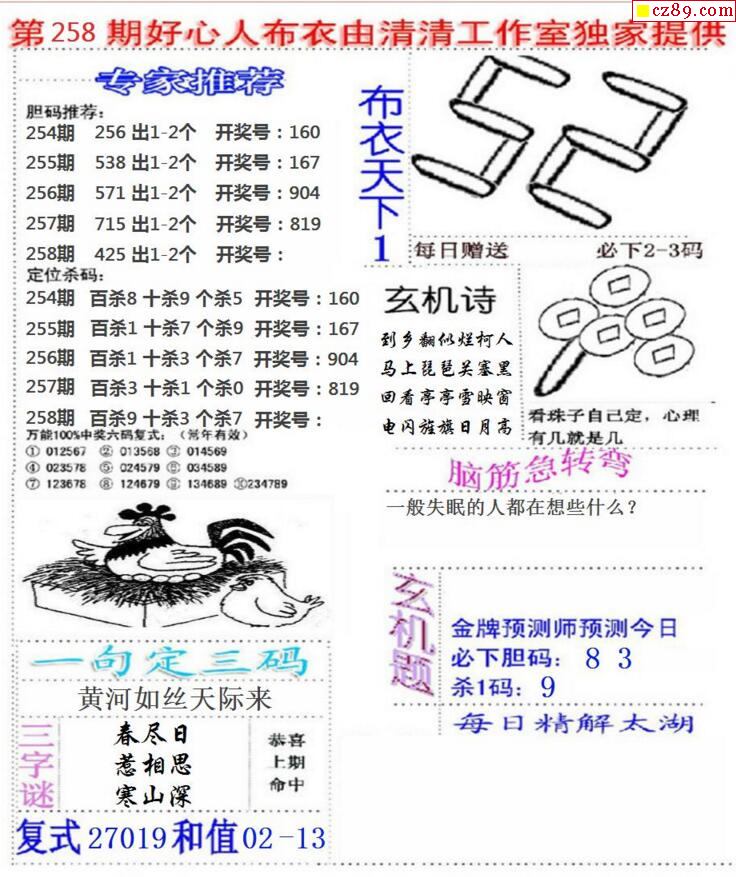 cz89.com
第 258 期好心人布衣由清清工作室独家提供
专家推荐
胆码推荐：
254期 256 出1-2个 开奖号：160
255期 538 出1-2个 开奖号：167
256期 571 出1-2个 开奖号：904
257期 715 出1-2个 开奖号：819
258期 425 出1-2个 开奖号：
定位杀码：
254期 百杀8 十杀9 个杀5 开奖号：160
255期 百杀1 十杀7 个杀9 开奖号：167
256期 百杀1 十杀3 个杀7 开奖号：904
257期 百杀3 十杀1 个杀0 开奖号：819
258期 百杀9 十杀3 个杀7 开奖号：
万能100%中奖六码复式：（常年有效）
① 012567 ② 013568 ③ 014569
④ 023578 ⑤ 024579 ⑥ 034589
⑦ 123678 ⑧ 124679 ⑨ 134689 ⑩234789
一句定三码
黄河如丝天际来
三字谜
春尽日
惹相思
寒山深
恭喜
上期
命中
复式 27019 和值 02-13
布衣天下1
每日赠送 必下2-3码
玄机诗
到乡翻似烂柯人
马上琵琶关塞黑
回看亭亭雪映窗
电闪旌旗日月高
看珠子自己定，心理
有几就是几
脑筋急转弯
一般失眠的人都在想些什么？
玄机题
金牌预测师预测今日
必下胆码： 8 3
杀1码： 9
每日精解太湖